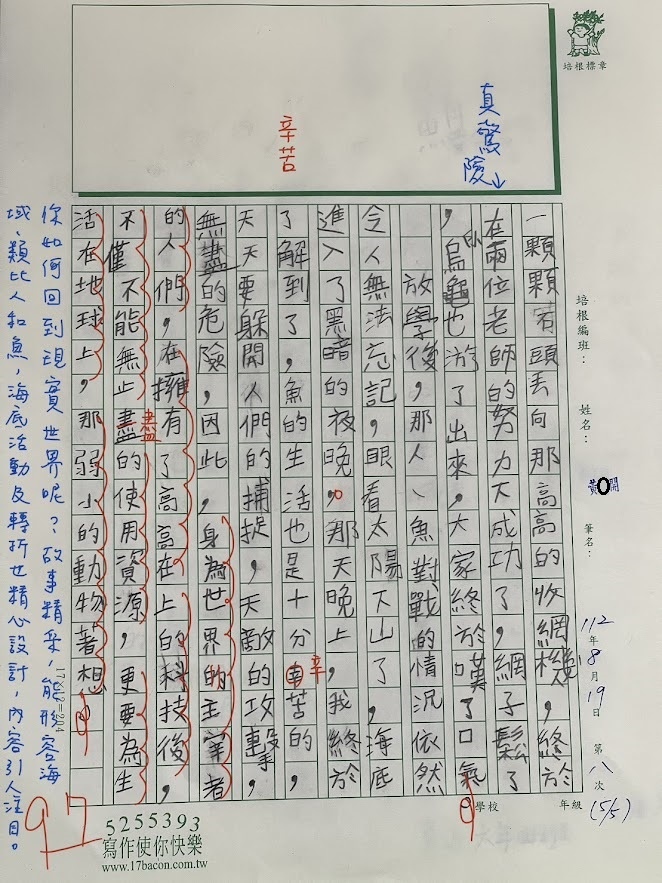 培根標章
真驚
險↓
辛苦
一顆顆石頭丟向那高高的收網機，終於
在兩位老師的努力下成功了，網子鬆了
，烏龜也游了出來，大家終於嘆了口氣。
的
放學後，那人、魚對戰的情況依然
令人無法忘記，眼看太陽下山了，海底
進入了黑暗的夜晚。那天晚上，我終於
了解到了，魚的生活也是十分辛苦的，
天天要躲開人們的捕捉，天敵的攻擊，
無盡的危險，因此，身為世界的主宰者
的人們，在擁有了高高在上的科技後，
不僅不能無止盡的使用資源，更要為生
盡
活在地球上，那弱小的動物著想。
你如何回到現實世界呢？故事精采，能形容海
域、類比人和魚，海底活動及轉折也精心設計，內容引人注目。
97
培根編班：
姓名：
黃
筆名：
112年8月19日 第八次
(5/5)
學校
年級
17X12=204
5255393
寫作使你快樂
www.17bacon.com.tw